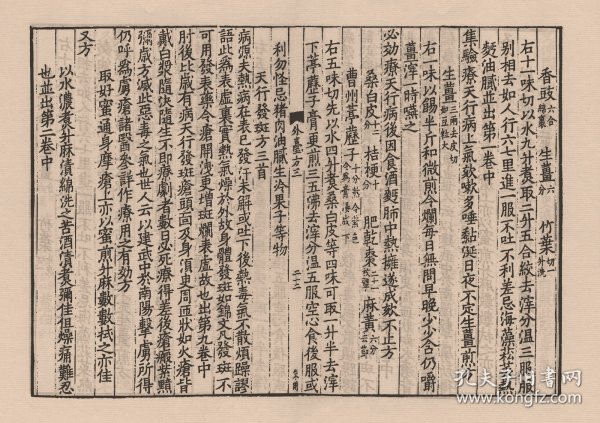 香豉六合綿裹 生薑六分 竹葉切一升洗
右十一味切以水九升煑取二升五合絞去滓分溫三服服
别相去如人行六七里進一服不吐不利差忌海藻菘菜熱
麪油膩並出第一卷中
集驗療天行病上氣欬嗽多唾黏涎日夜不定生薑煎方
生薑三兩去皮切如豆粒大
右一味以餳半斤和微煎令爛每日無問早晚少少含仍嚼
薑滓一時嚥之
必効療天行病後因食酒麪肺中熱擁遂成欬不止方
桑白皮十二分 桔梗十分 肥乾棗二十一枚擘 麻黄六分去節
曹州葶藶子十分熬令紫色
右五味切先以水四升煑桑白皮等四味可取一升半去滓
下葶藶子膏更煎三五沸去滓分溫五服空心食後服或
利勿怪忌猪肉油膩生冷果子等物
外臺方三
天行發斑方三首
病源夫熱病在表已發汗未解或吐下後熱毒氣不散煩躁謬
語此爲表虛裏實熱氣燥於外故身體發斑如錦文凡發斑不
可用發表藥令瘡開洩更增斑爛表虛故也出第九卷中
肘後比歲有病天行發斑瘡頭面及身須臾周匝狀如火瘡皆
戴白漿隨決隨生不即療劇者數日必死療得差後瘡瘢紫黯
彌歲方滅此惡毒之氣也世人云以建武中於南陽擊虜所得
仍呼爲虜瘡諸醫參詳作療用之有効方
取好蜜通身摩瘡上亦以蜜煎升麻數數拭之亦佳
又方
以水濃煑升麻漬綿洗之苦酒漬煑彌佳但燥痛難忍
也並出第二卷中
孔夫子旧书网
www.kongfz.com